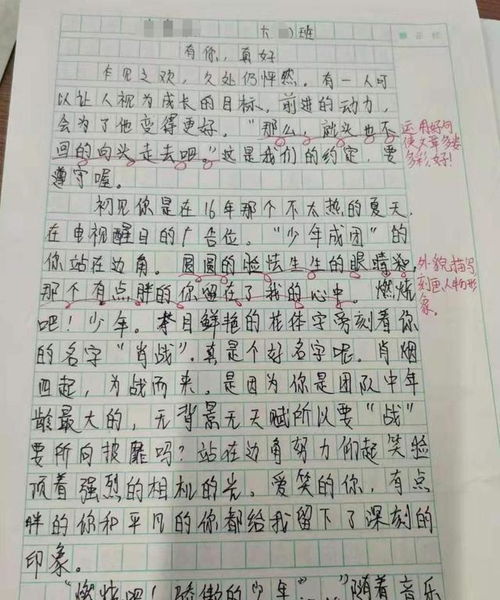 六 班
有你，真好
乍见之欢，久处仍怦然。有一人可
以让人视为成长的目标，前进的动力，
会为了他变得更好。“那么，就头也不
回的向前走去吧。”这是我们的约定，要
遵守喔。
运用好句
使文章多姿
多彩，好！
初见你是在16年那个不太热的夏天，
在电视醒目的广告位。“少年成团”的
你站在边角。圆圆的脸怯生生的眼睛和
那个有点胖的你留在了我的心中。燃烧
外貌描写
刻画人物形
象。
吧！少年。 目鲜艳的花体字旁刻着你
的名字“肖战”，真是个好名字呢。肖烟
四起，为战而来。是因为你是团队中年
龄最大的，无背景无天赋所以要“战”
要所向披靡吗？站在边角努力们起笑脸
顶着强烈的相机的光。爱笑的你，有点
胖的你和平凡的你都给我留下了深刻的
印象。
“燃烧吧！骄傲的少年” “随着音乐